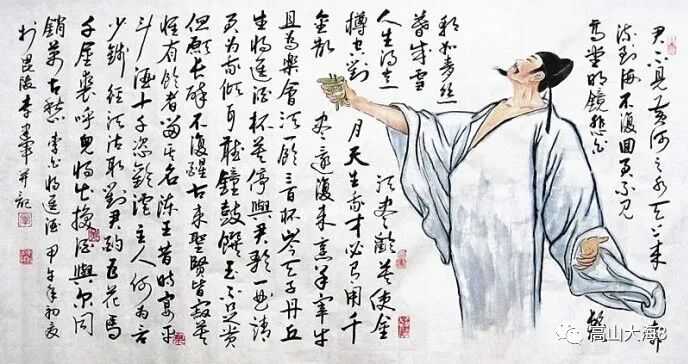 君不见黄河之水天上来奔
流到海不復回君不见
高堂明镜悲白髮
朝如青丝
暮成雪
人生得意须尽歡莫使金
樽空對月天生我材必有用千
金散尽還復来烹羊宰牛
且為樂會须一飲三百杯岑夫子丹丘
生将進酒杯莫停與君歌一曲請
君为我倾耳聽鐘鼓饌玉不足贵
但願长醉不復醒古来聖賢皆寂寞
惟有飲者留其名陈王昔時宴平
斗酒十千恣歡謔主人何为言
少錢径须沽取對君酌五花馬
千金裘呼兒将出换酒與尔同
銷萬古愁 李白将進酒 甲午年初夏
於毘陵李军并記
高山大海8